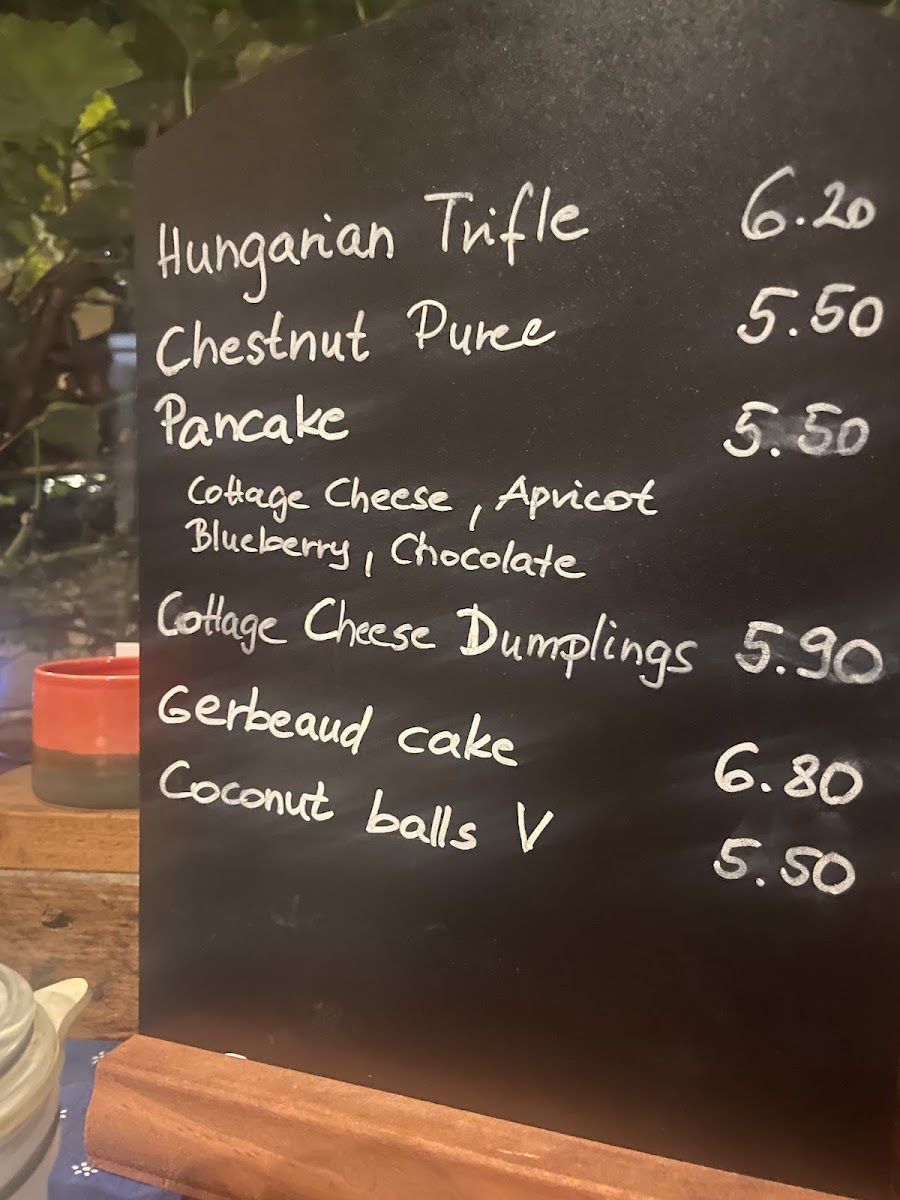 Hungarian Trifle 6.20
Chestnut Puree 5.50
Pancake 5.50
Cottage Cheese, Apricot
Blueberry, Chocolate
Cottage Cheese Dumplings 5.90
Gerbeaud cake 6.80
Coconut balls V 5.50